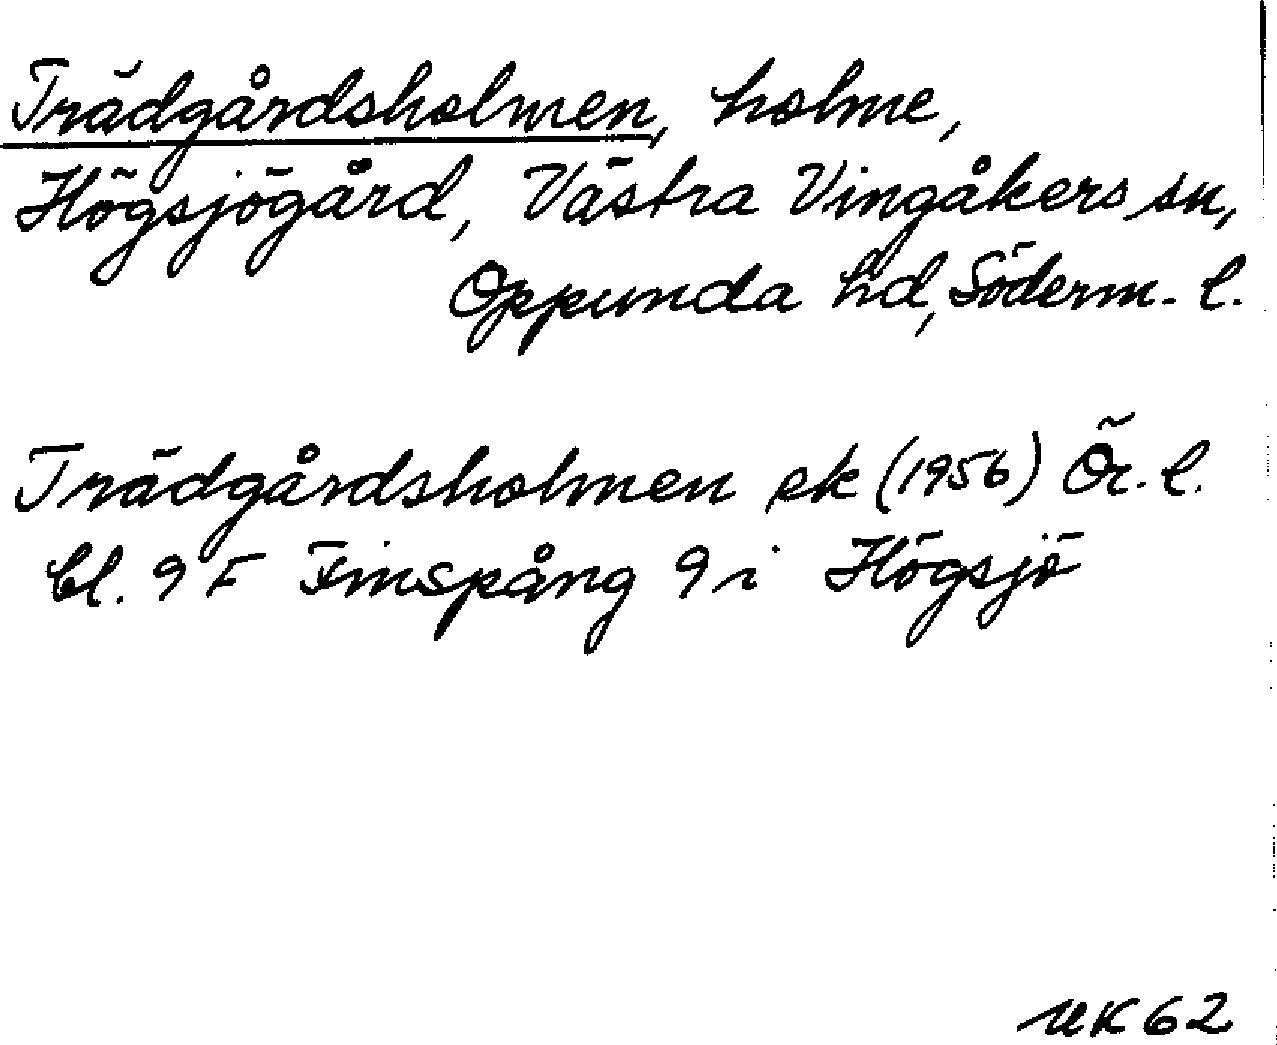 Trädgårdsholmen, holme,
Högsjögård, Västra Vingåkers sn,
Oppunda hd, Söderm. l.
Trädgårdsholmen ek (1956) Ör. l.
bl. 9 F Finspång 9 i Högsjö
UK 62